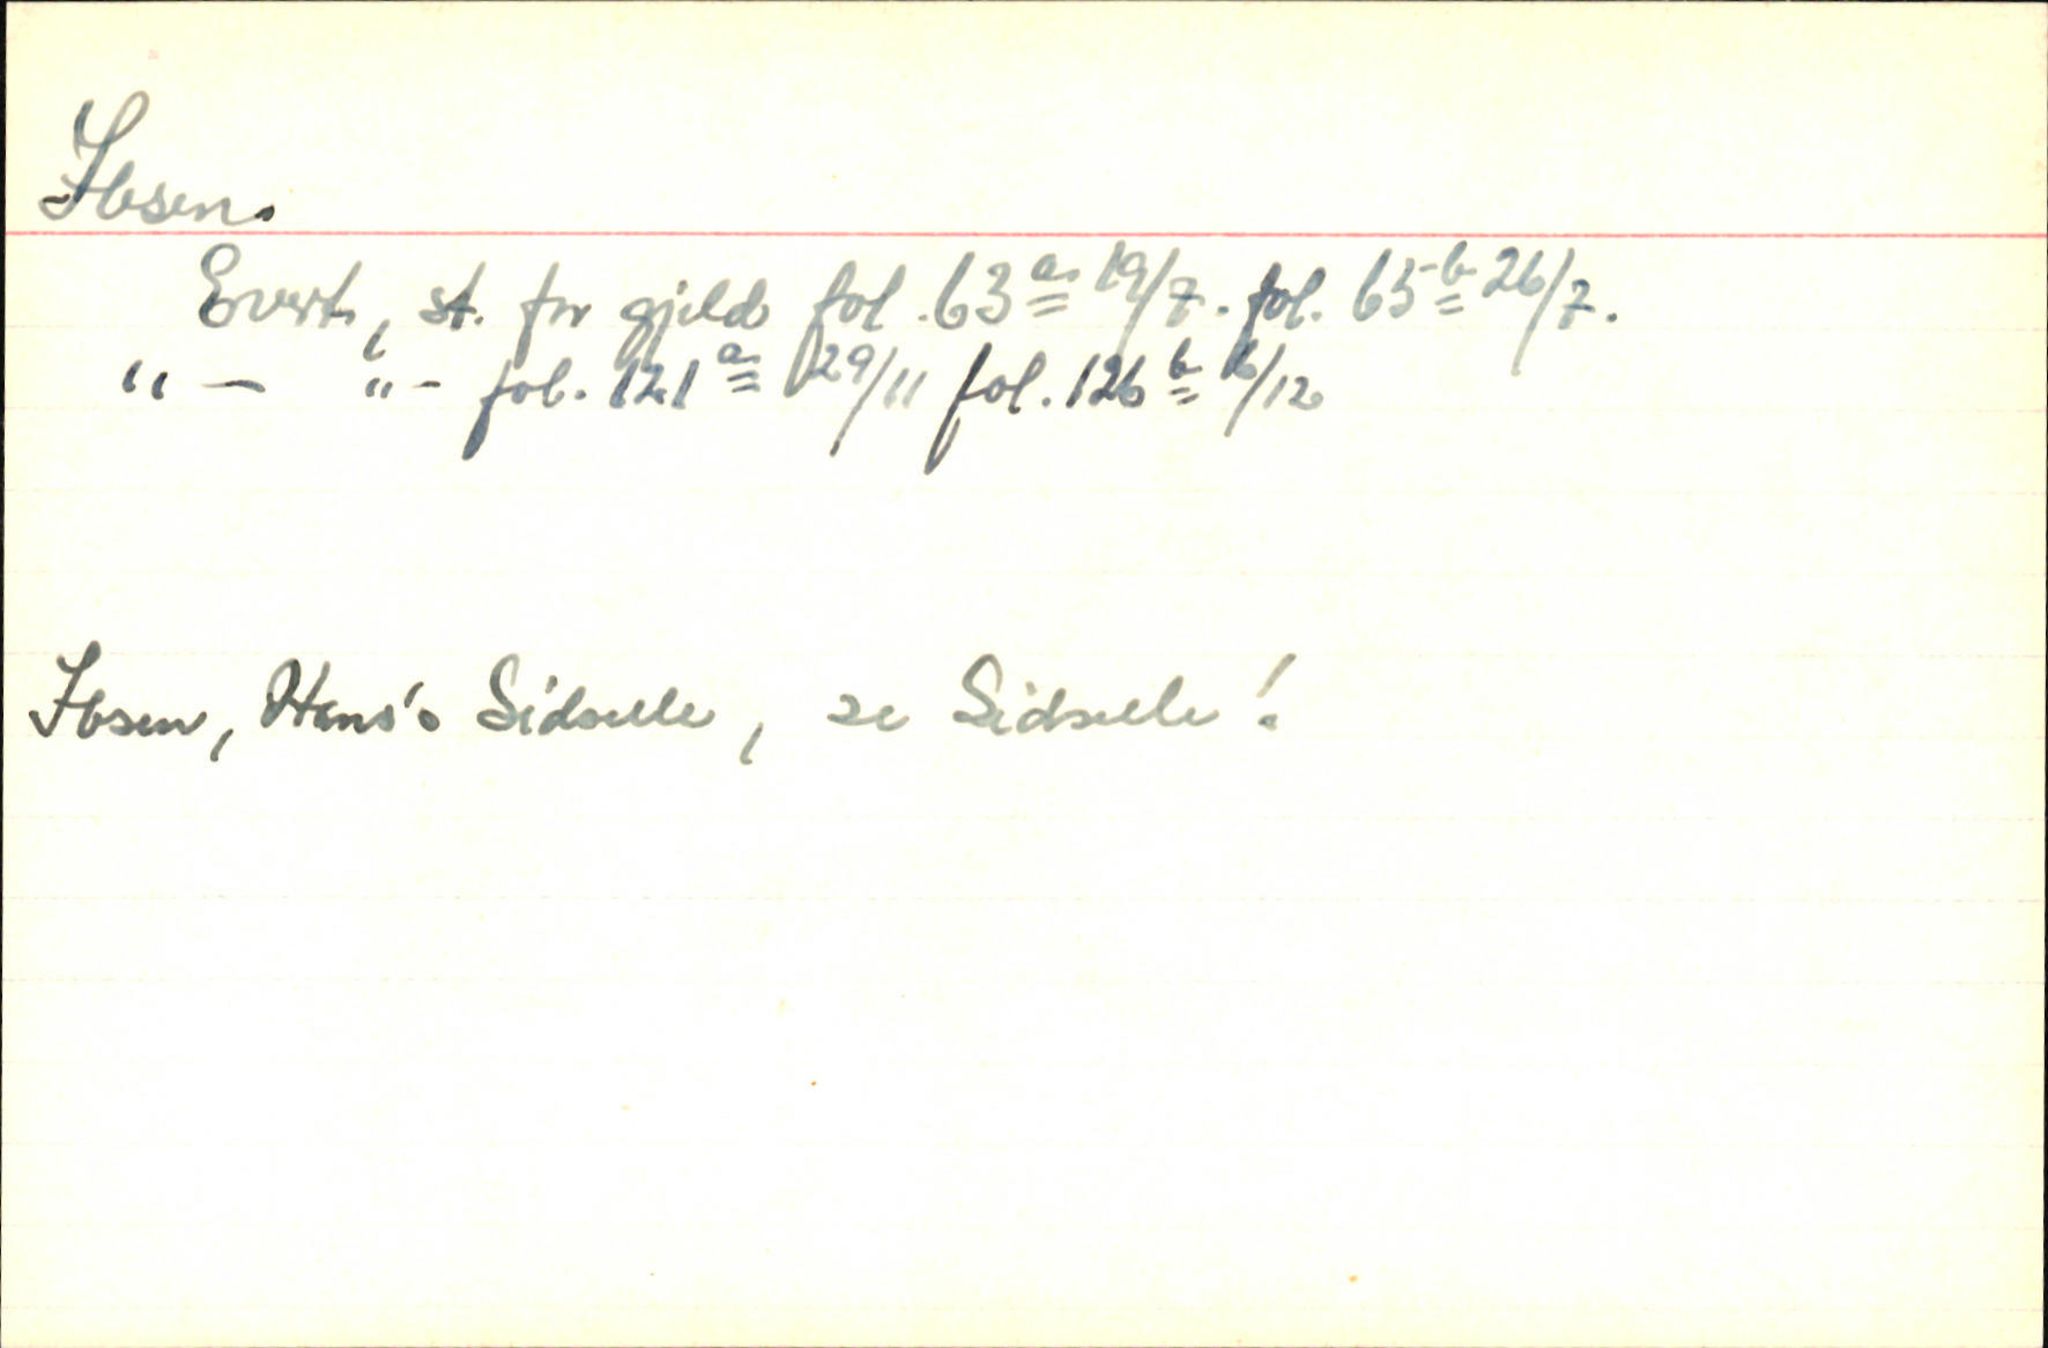 Ibsen.
Evert, st. for gjeld fol. 63 a 19/7. fol. 65 b 26/7.
" — " - fol. 121 a 29/11 fol. 126 b 6/12
Ibsen, Hans's Sidselle, se Sidselle!